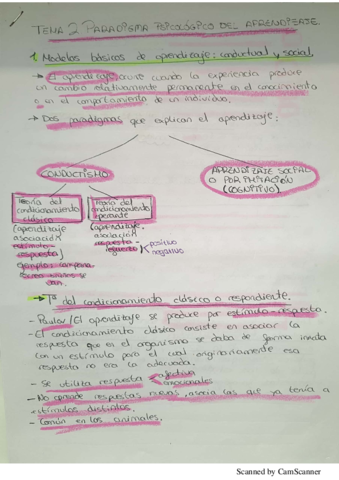 TEMA 2 PARADIGMA PSICOLÓGICO DEL APRENDIZAJE.
1. Modelos básicos de aprendizaje: conductual y social.
→ El aprendizaje ocurre cuando la experiencia produce
un cambio relativamente permanente en el conocimiento
o en el comportamiento de un individuo.
→ Dos paradigmas que explican el aprendizaje:
CONDUCTISMO
APRENDIZAJE SOCIAL
O POR IMITACIÓN
(COGNITIVO)
Teoría del
condicionamiento
clásico
(aprendizaje
asociación
estímulo-
respuesta)
Teoría del
condicionamiento
operante
(aprendizaje
asociación
respuesta-
positivo
negativo
→ Tª del condicionamiento clásico o respondiente.
- Paulov/El aprendizaje se produce por estímulo-respuesta.
- El condicionamiento clásico consiste en asociar la
respuesta que en el organismo se daba de forma innata
con un estímulo para el cual originariamente esa
respuesta no era la adecuada.
- Se utiliza respuesta afectiva
emocionales
- No aprende respuestas nuevas, asocia las que ya tenía a
estímulos distintos.
- Común en los animales.
Scanned by CamScanner